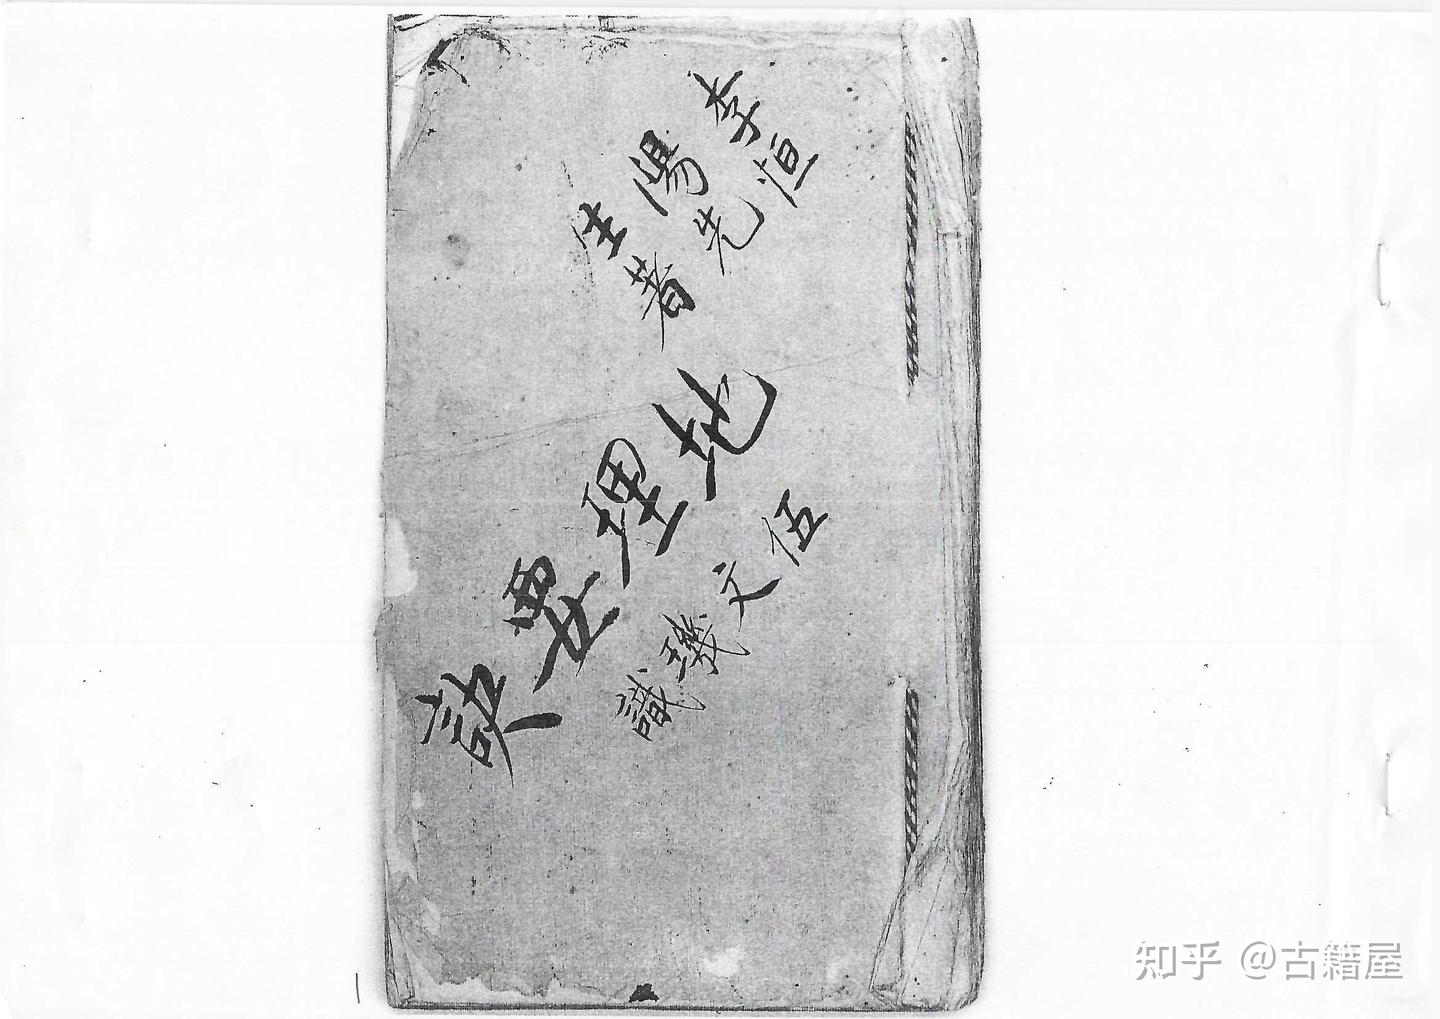 李恒陽先生著
地理要訣
伍文璣識
知乎 @古籍屋